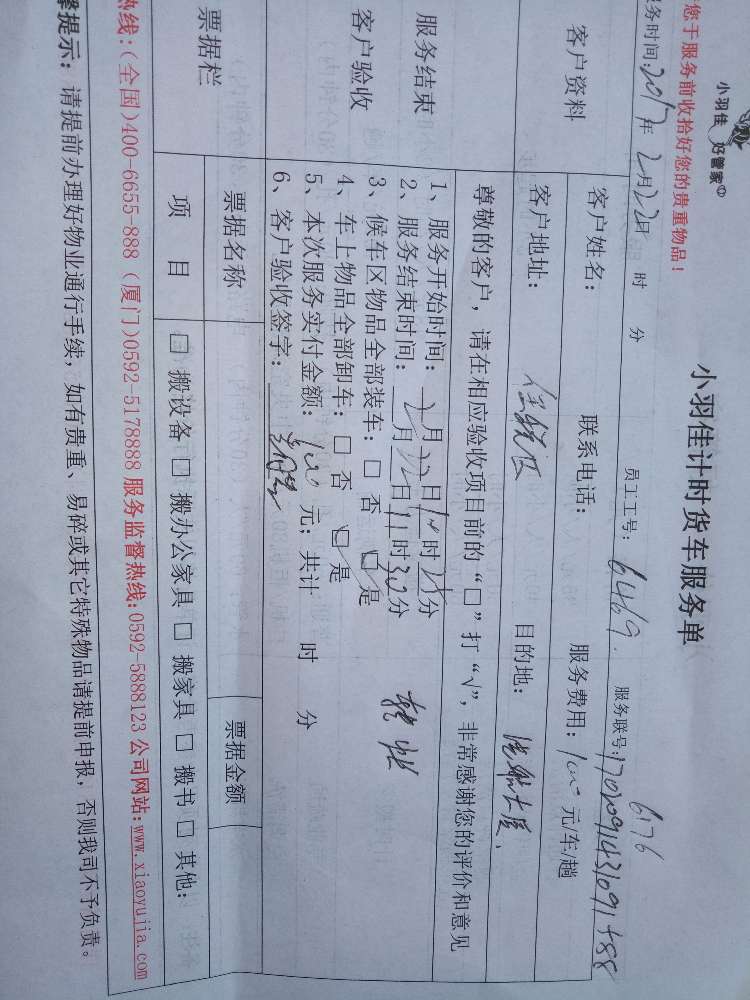 小羽佳
好管家
小羽佳计时货车服务单
您于服务前收拾好您的贵重物品！
员工工号：6469.
服务联号：
6176
务时间：2017年2月22日 时 分
客户资料
客户姓名： 联系电话： 服务费用：100元/车/趟
客户地址： 目的地：
服务结束
客户验收
尊敬的客户，请在相应验收项目前的“□”打“√”，非常感谢您的评价和意见
1、服务开始时间：2月22日10时25分
2、服务结束时间：2月22日11时30分
3、候车区物品全部装车：□ 否 □ 是
4、车上物品全部卸车：□ 否 □ 是
5、本次服务实付金额：100元；共计 时 分
6、客户验收签字：
票据栏
票据名称
票据金额
项 目
□ 搬设备 □ 搬办公家具 □ 搬家具 □ 搬书 □ 其他：
热线：(全国)400-6655-888 (厦门)0592-5178888 服务监督热线：0592-5888123 公司网站：www.xiaoyujia.com
馨提示：请提前办理好物业通行手续，如有贵重、易碎或其它特殊物品请提前申报，否则我司不予负责。